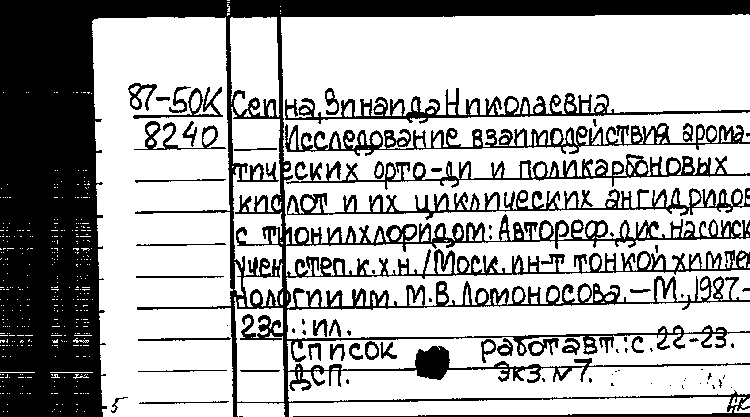 87-50К Сепна, Зинаида Николаевна.
8240 Исследование взаимодействия арома-
тических орто-ди и поликарбоновых
кислот и их циклических ангидридов
с тионилхлоридом: Автореф. дис. на соиск.
учен. степ. к.х.н. / Моск. ин-т тонкой хим. тех-
нологии им. М.В. Ломоносова. — М., 1987.-
23с.: ил.
Список работ авт.: с. 22-23.
ДСП. Экз. №7.
5